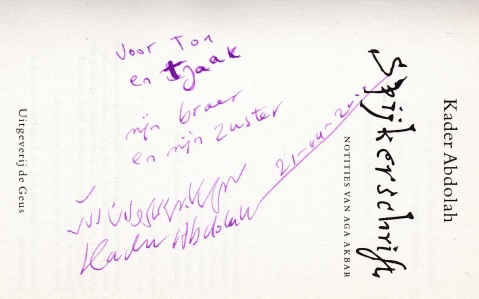 Kader Abdolah
Spijkerschrift
NOTITIES VAN AGA AKBAR
Uitgeverij de Geus
Voor Ton
en tjaak
mijn broer
en mijn zuster
Kader Abdolah